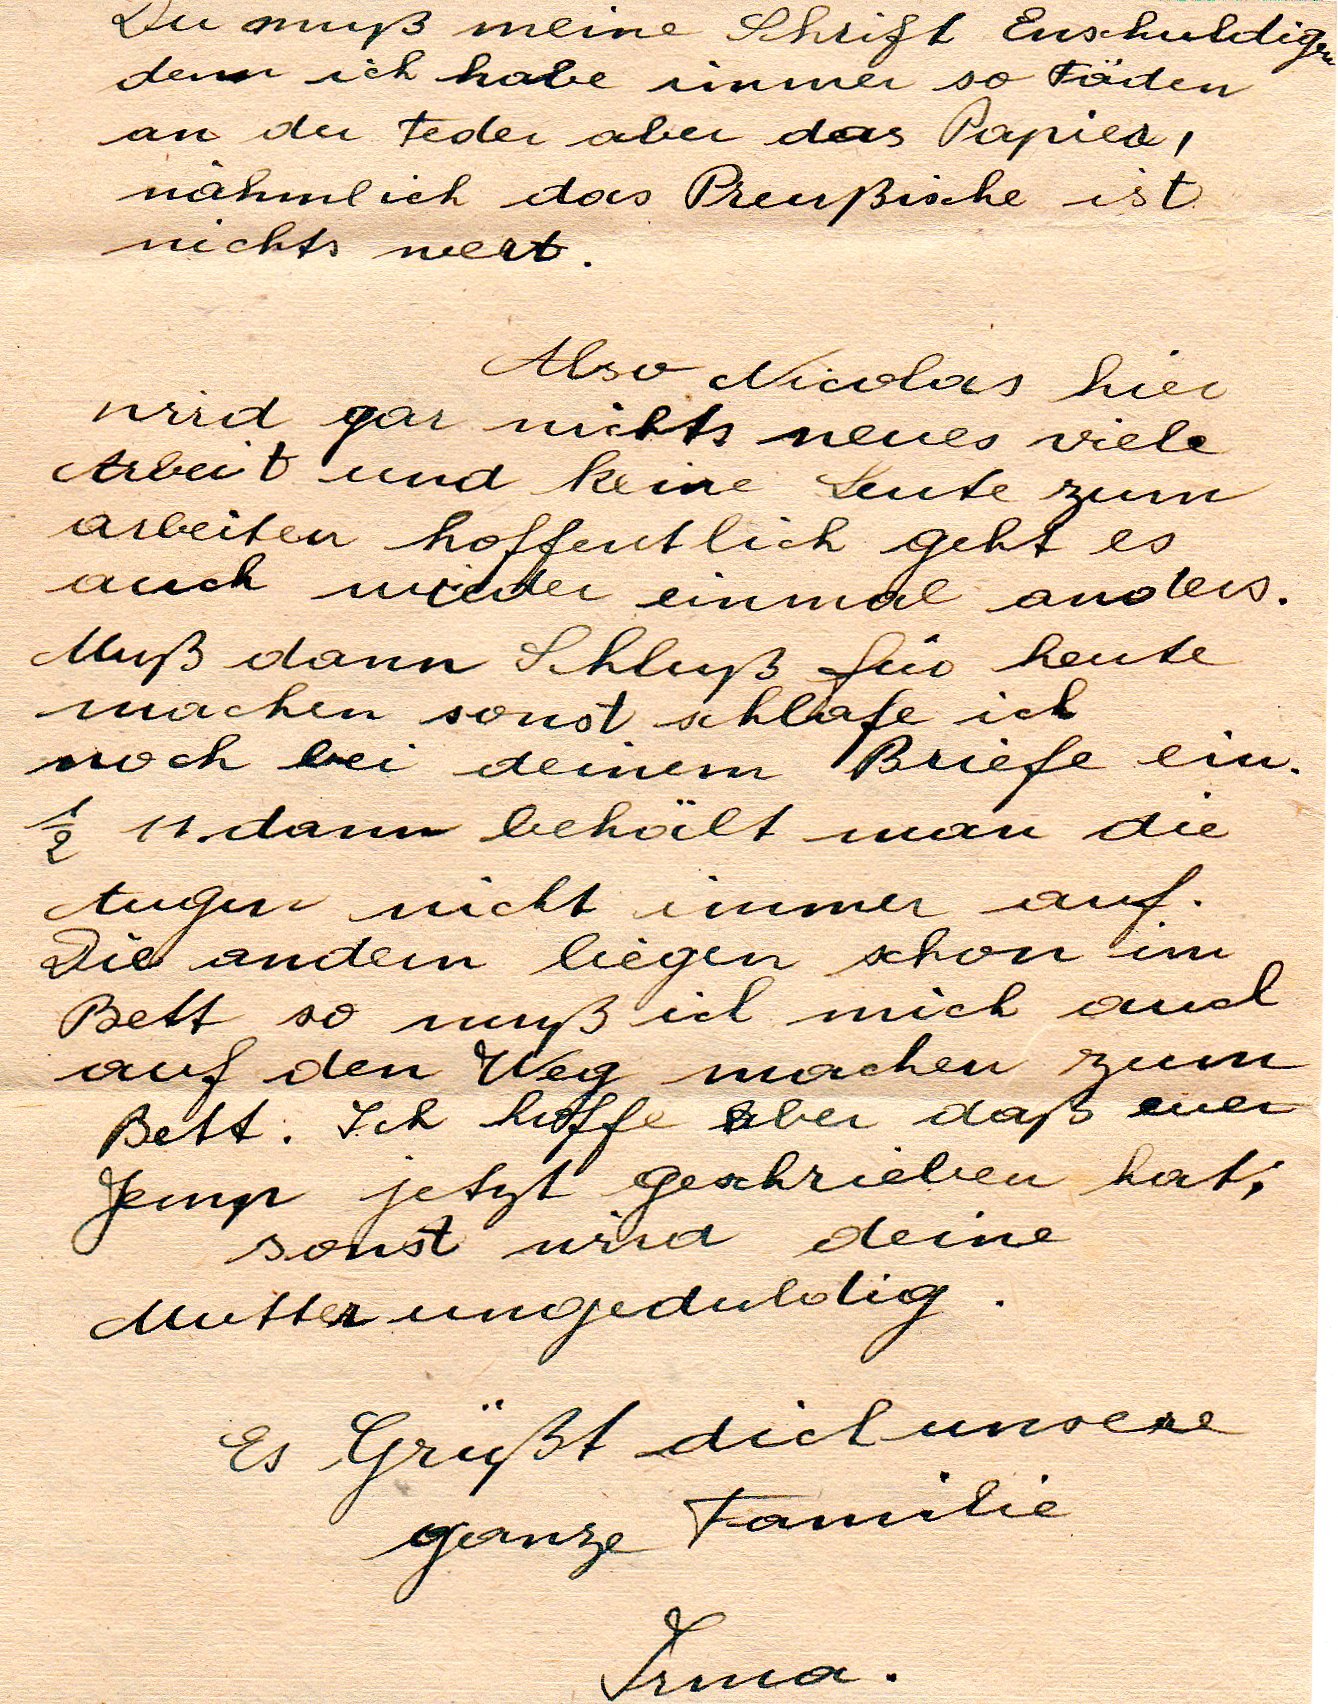 Du muß meine Schrift Enschuldigen
denn ich habe immer so Fäden
an der Feder aber das Papier,
nähmlich das Preußische ist
nichts wert.
Also Nicolas hier
wird gar nichts neues viele
Arbeit und keine Leute zum
arbeiten hoffentlich geht es
auch wieder einmal anders.
Muß dann Schluß für heute
machen sonst schlafe ich
noch bei deinem Briefe ein.
½ 11. dann behält man die
Augen nicht immer auf.
Die andern liegen schon im
Bett so muß ich mich auch
auf den Weg machen zum
Bett. Ich hoffe aber daß euer
Jemp jetzt geschrieben hat,
sonst wird deine
Mutter ungeduldig.
Es Grüßt dich unsere
ganze Familie
Irma.